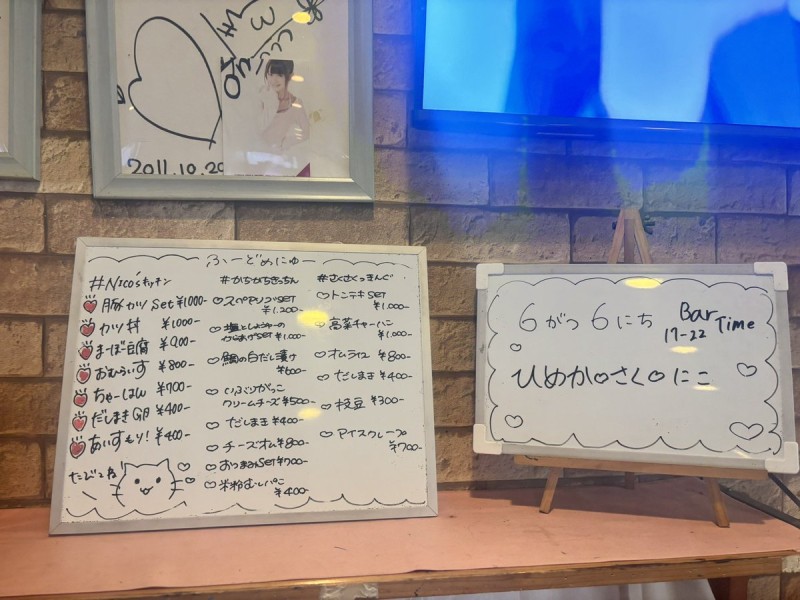 2011.10.20
ふーどめにゅー
#Nico'sキッチン
豚カツ Set ¥1000-
カツ丼 ¥1000-
まーぼ豆腐 ¥900-
おむらいす ¥800-
ちゃーはん ¥700-
だしまき ¥400-
あいすもり! ¥400-
たべてね
スペアリブSET
¥1.200-
塩としょうゆの
からあげSET ¥1.000-
鯛の白だし漬け
¥600-
いぶりがっこ
クリームチーズ ¥500-
だし玉 ¥400-
チーズオム ¥800-
おつまみSet ¥700-
米粉むしパン
¥400-
#さくさくっきんぐ
トンテキSET
¥1.000-
高菜チャーハン
¥1.000-
オムライス ¥800-
だしまき ¥400-
枝豆 ¥300-
アイスクレープ
¥700-
6がつ6にち
Bar Time
17-22
ひめか♡さく♡にこ